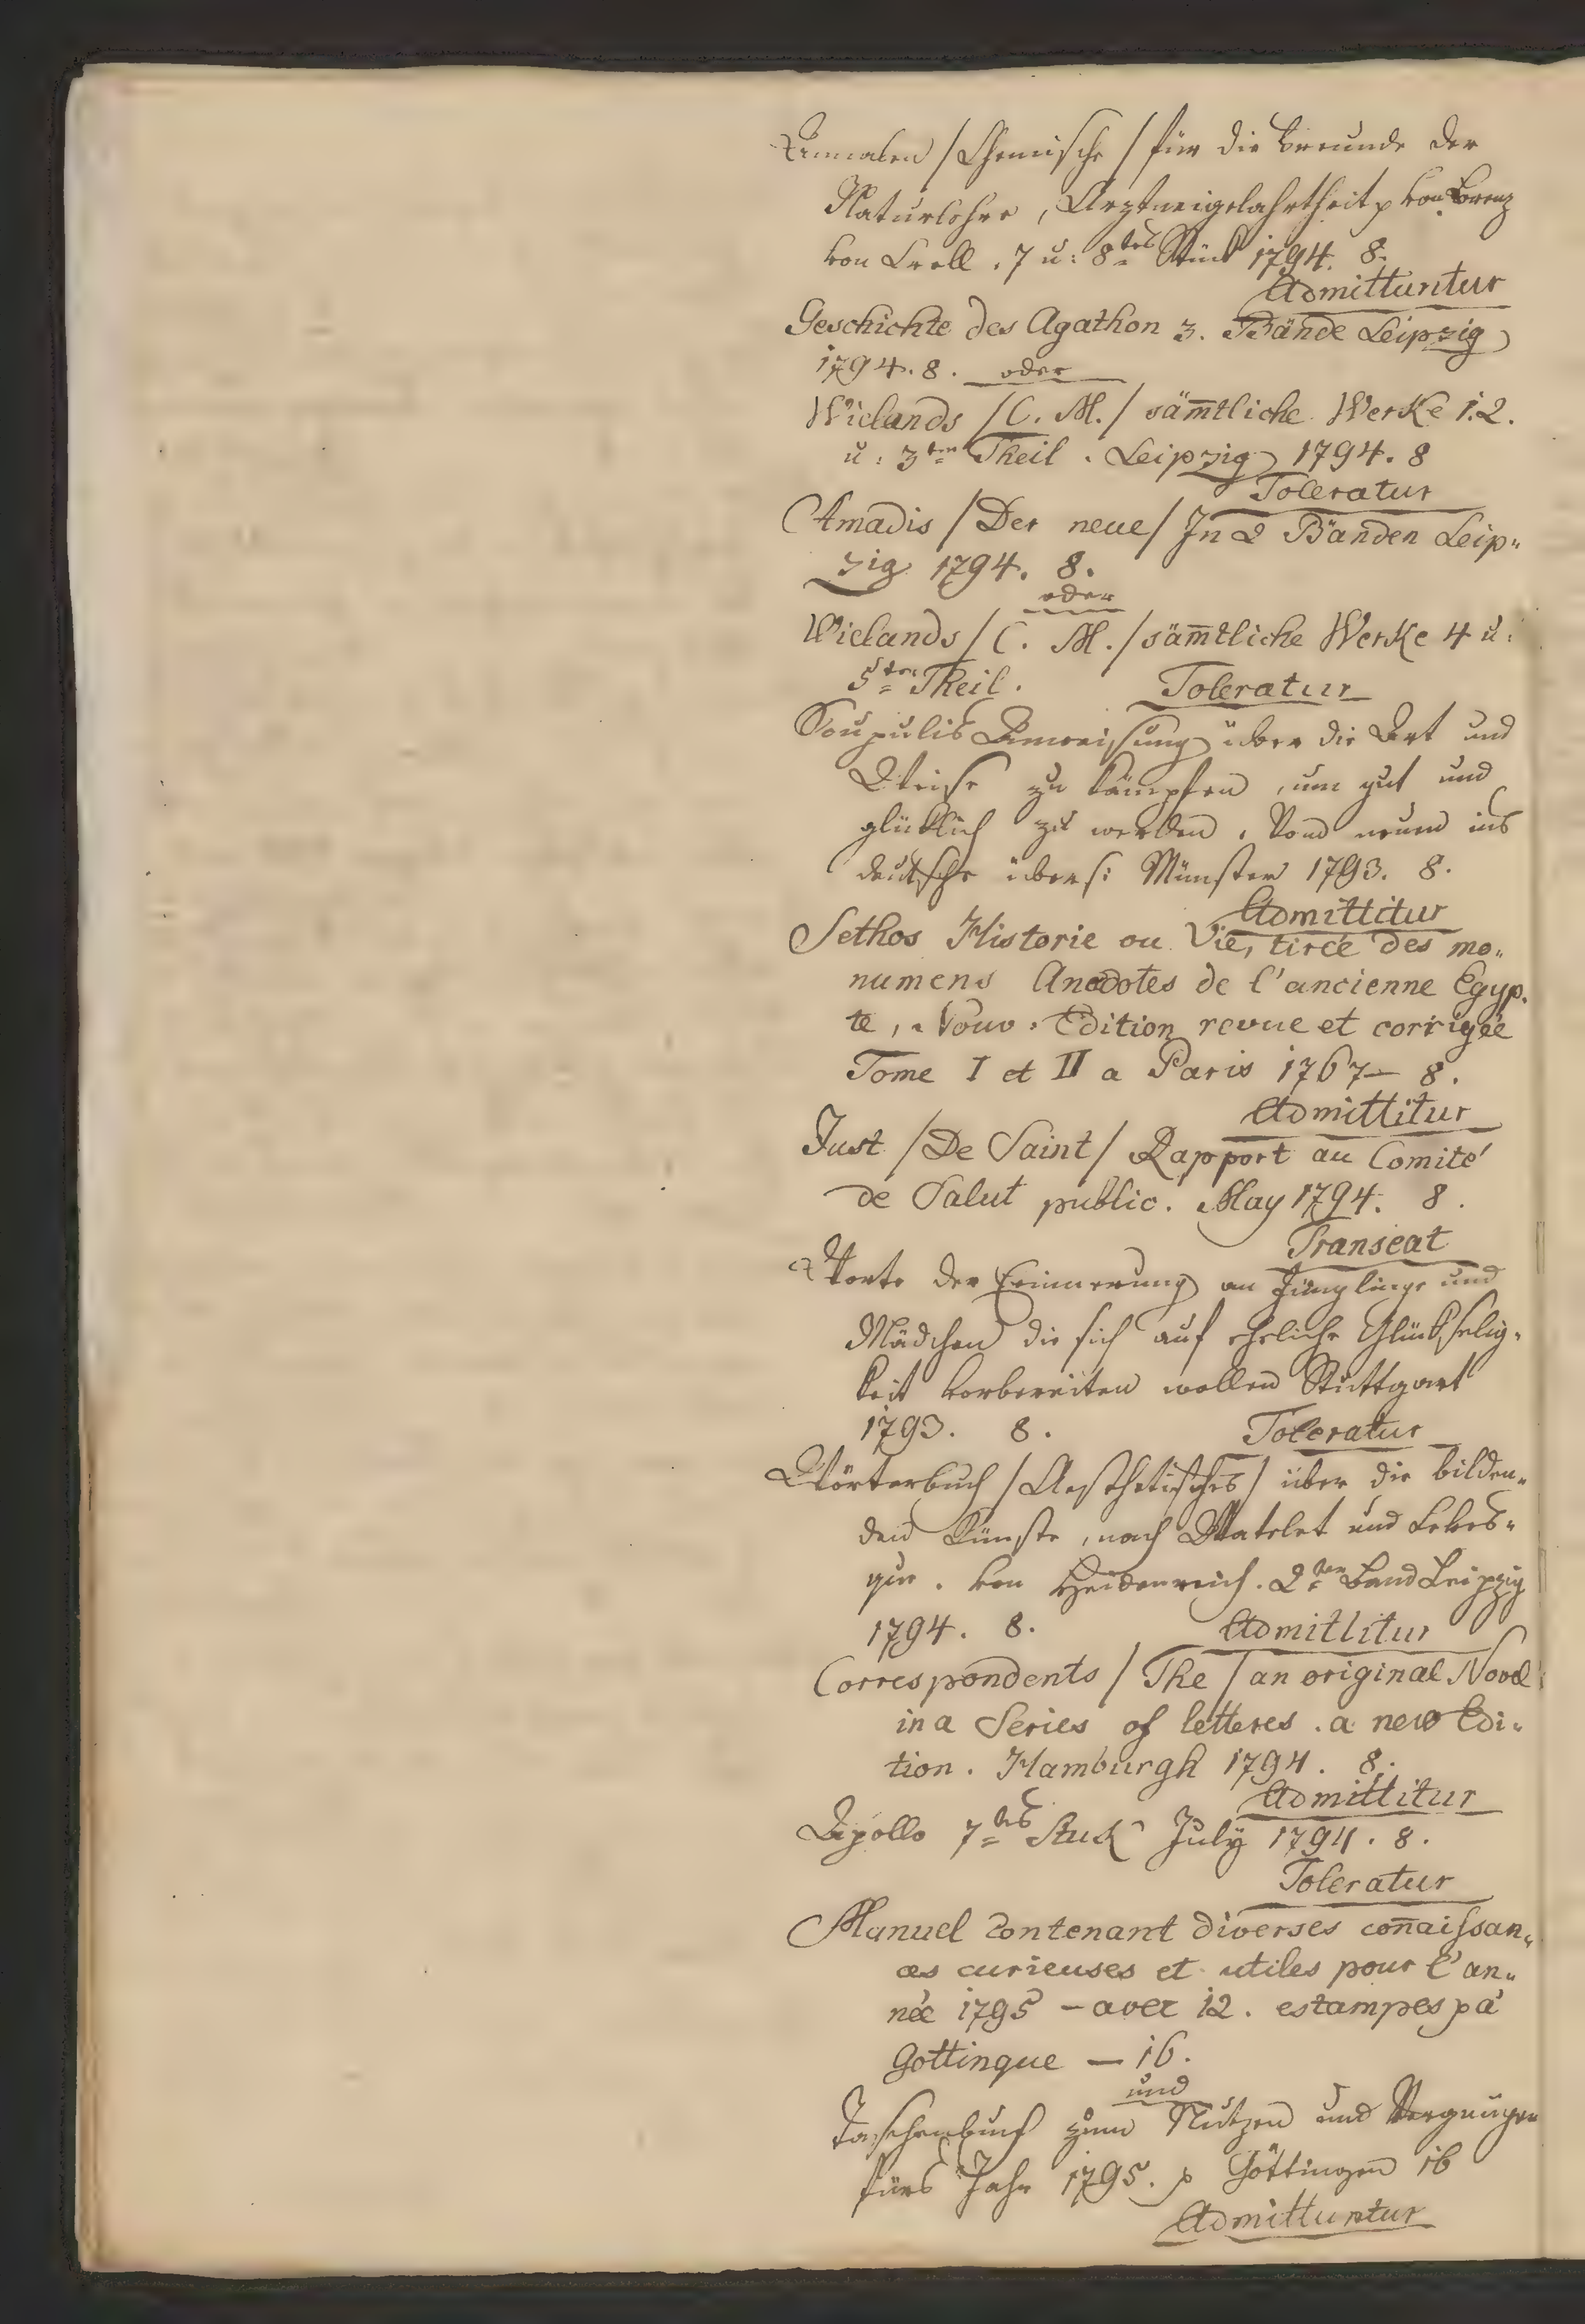 Annalen /Chemische/ für die Freunde der
Naturlehre, Arztneigelahrtheit p von Lorenz
von Crell. 7 u: 8tes Stück 1794. 8.
Admittuntur
Geschichte des Agathon 3. Bände Leipzig
1794. 8. oder
Wielands /C. M./ säm̄tliche Werke 1. 2.
u: 3ter Theil. Leipzig 1794. 8
Toleratur
Amadis /Der neue/ In 2 Bänden Leip„
zig 1794. 8.
oder
Wielands /C. M./ säm̄tliche Werke 4 u:
5ter Theil. Toleratur
Anweisung über die Art und
Weise zu kämpfen, um gut und
glüklich zu werden. Von neuem ins
deutsche übers: Münster 1793. 8.
Admittitur
Sethos Historie ou Vie, tirée des mo„
numens Anecdotes de l'ancienne Egyp„
te, Nouv: Edition revue et corrigée
Tome I et II a Paris 1767 — 8.
Admittitur
Just /De Saint/ Rapport au Comité
de Salut public. May 1794. 8.
Transeat
Worte der Erinnerung an Jünglinge und
Mädchen die sich auf eheliche Glükselig„
keit vorbereiten wollen Stuttgart
1793. 8. Toleratur
Wörterbuch /Aesthetisches/ über die bilden„
den Künste, nach Watelet und Leves„
que. von Heidenreich. 2ter Band Leipzig
1794. 8. Admittitur
Correspondents /The/ an original Novel
in a Series of letteres. a new Edi„
tion. Hamburgh 1794. 8.
Admittitur
Apollo 7tes Stuk July 1794. 8.
Toleratur
Manuel contenant diverses con̄aissan„
ces curieuses et utiles pour l'an„
née 1795 — avec 12. estampes p á
Gottingue — 16.
und
Taschenbuch zum Nutzen und Vergnügen
fürs Jahr 1795. p Göttingen 16
Admittuntur